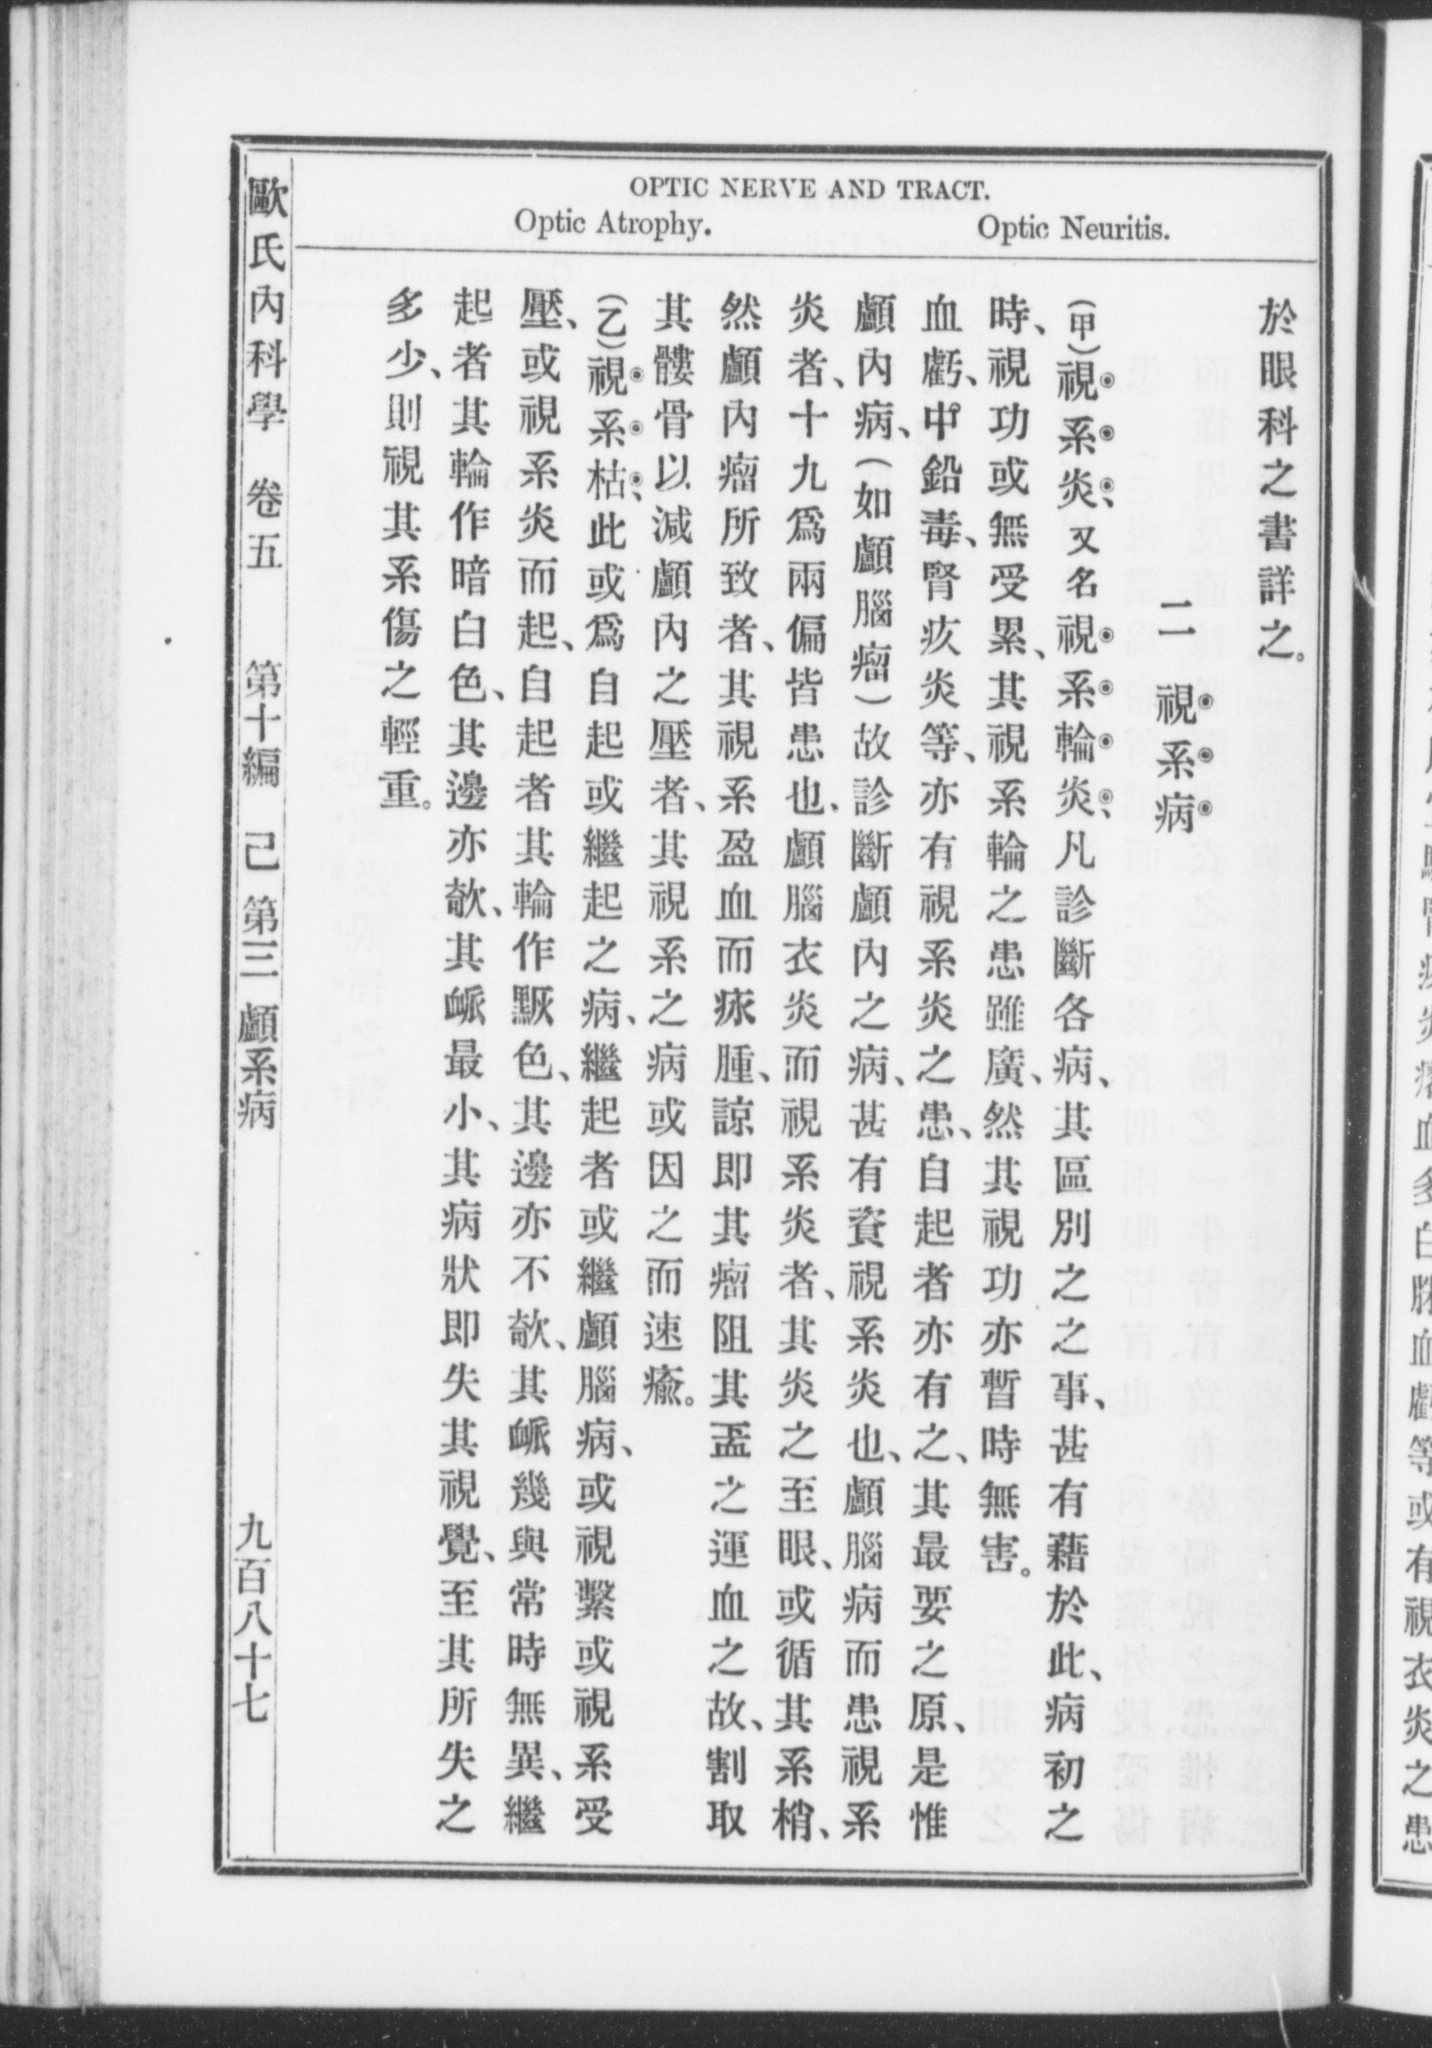 OPTIC NERVE AND TRACT.
Optic Atrophy.
Optic Neuritis.
於眼科之書詳之。
二 視系病
(甲)視系炎、又名視系輪炎、凡診斷各病、其區別之之事、甚有藉於此、病初之
時、視功或無受累、其視系輪之患雖廣、然其視功亦暫時無害。
血虧、中鉛毒、腎疢炎等、亦有視系炎之患、自起者亦有之、其最要之原、是惟
顱內病、(如顱腦瘤)故診斷顱內之病、甚有資視系炎也、顱腦病而患視系
炎者、十九爲兩偏皆患也、顱腦衣炎而視系炎者、其炎之至眼、或循其系梢、
然顱內瘤所致者、其視系盈血而疢腫、諒卽其瘤阻其盃之運血之故、割取
其髏骨以減顱內之壓者、其視系之病或因之而速瘉。
(乙)視系枯、此或爲自起或繼起之病、繼起者或繼顱腦病、或視繫或視系受
壓、或視系炎而起、自起者其輪作黙色、其邊亦不欹、其衇幾與常時無異、繼
起者其輪作暗白色、其邊亦欹、其衇最小、其病狀卽失其視覺、至其所失之
多少、則視其系傷之輕重。
歐氏內科學 卷五 第十編 己 第三 顱系病 九百八十七